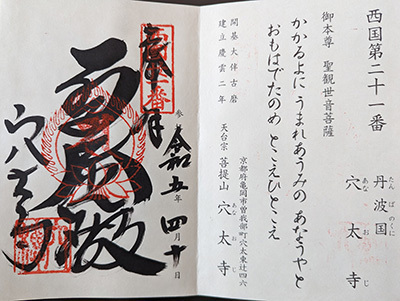 西国第二十一番
丹波国
たんばのくに
穴太寺
あなおおじ
御本尊　聖観世音菩薩
かかるよに　うまれあうみの　あなうやと
おもはでたのめ　とこえひとこえ
開基大伴古麿
建立慶雲二年
天台宗　菩提山　穴太寺
あなおおじ
京都府亀岡市曽我部町穴太東辻四六
奉拝
令和五年四月十日
穴太寺